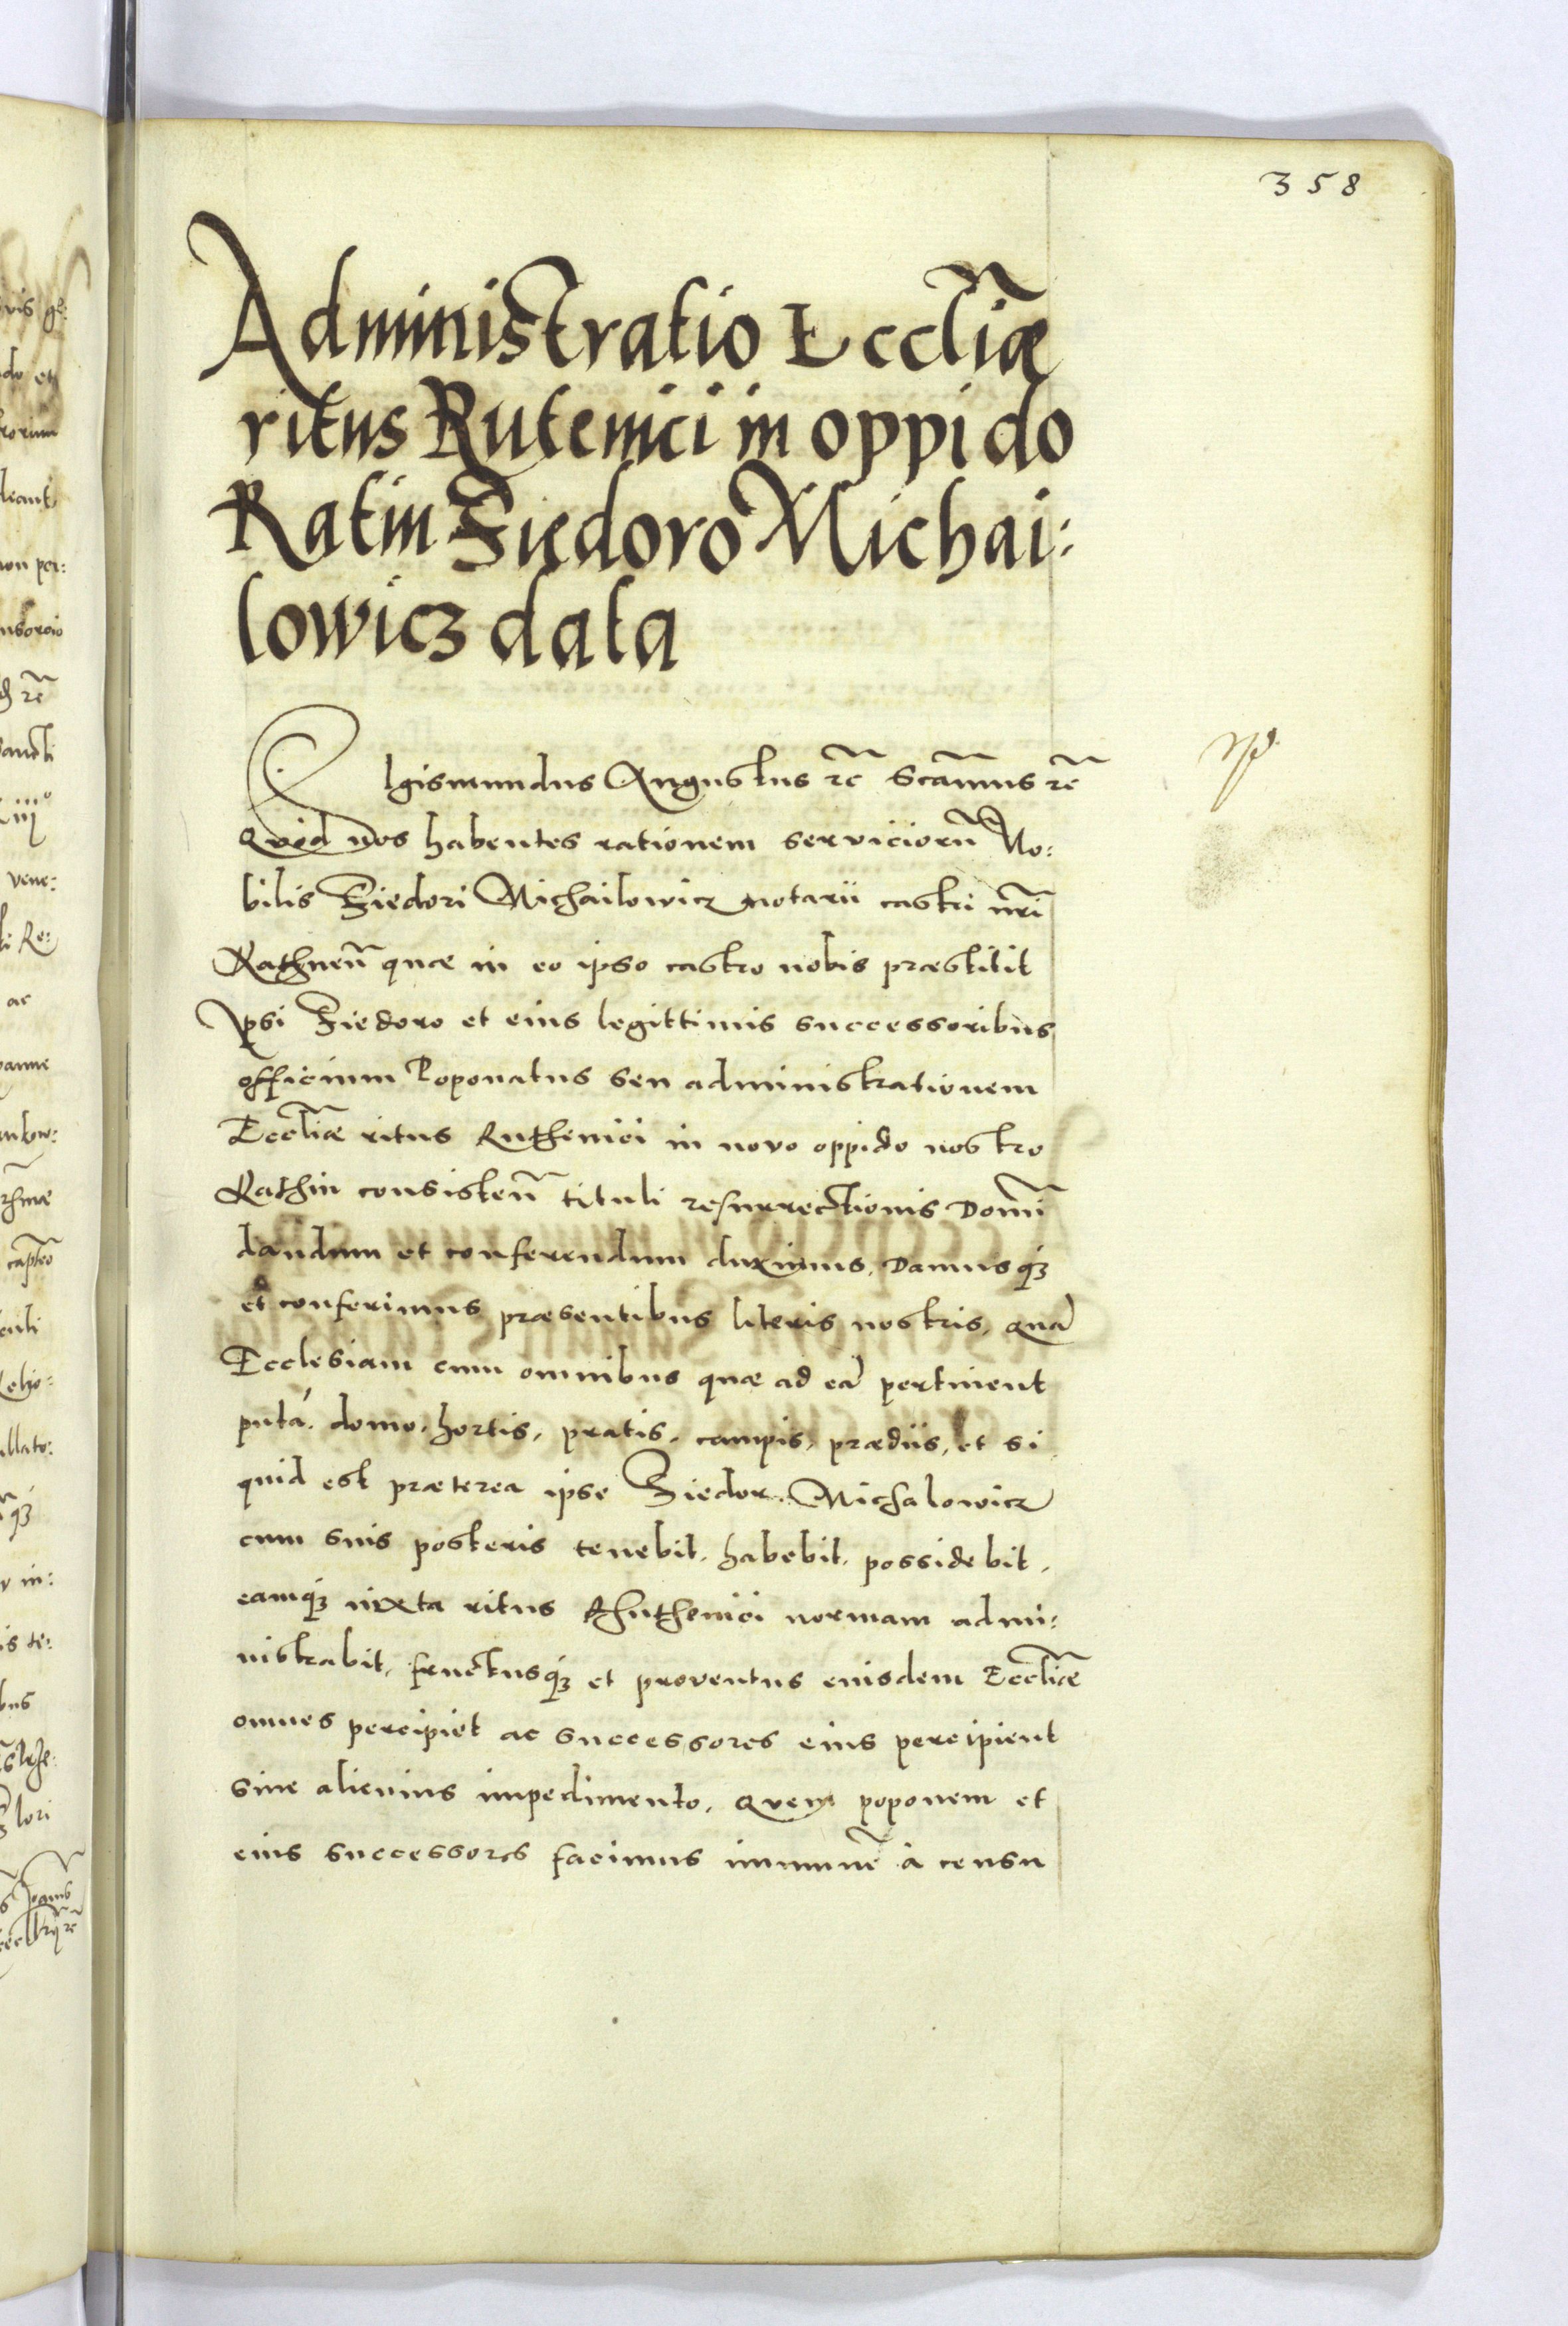 358
Administratio Eccl̃iæ
ritus Rutenici in oppido
Ratin Fiedoro Michai:
lowicz data
SIgismundus Augustus rẽ Scam̃us rẽ
Quod nos habentes rationem serviciorũ No:
bilis Fiedori Michailowicz notarii castri nr̃i
Rathneñ quæ in eo ipso castro nobis præstitit
Ipsi Fiedoro et eius legittimis successoribus
officium Poponatus seu administrationem
Eccl̃iæ ritus Ruthenici in novo oppido nostro
Rathin consisteñ tituli resurrectionis Domĩ
dandum et conferendum duximus. Damusq3
et conferimus præsentibus literis nostris, quã
Ecclesiam cum omnibus quæ ad eã pertinent
putà. domo, hortis, pratis, campis, prædiis, et si
quid est præterea ipse Fiedor Michalowicz
cum suis posteris tenebit. habebit. possidebit.
eamq3 iuxta ritus Rhuthenici normam admi:
nistrabit, fructusq3 et proventus eiusdem Eccl̃iæ
omnes percipiet ac successores eius percipient
sine alicuius impedimento. Quem poponem et
eius successores facimus immunẽ à censu